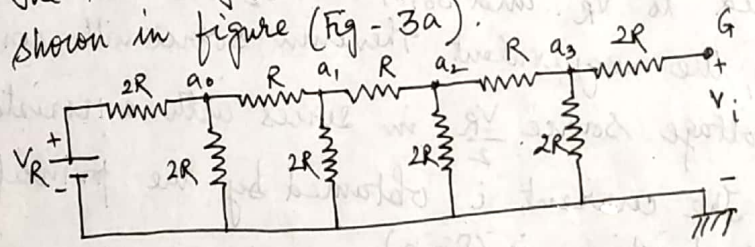 shown in figure (Fig - 3a).
2R a0 R a1 R a2 R a3 2R G
+
Vi
-
+
VR
-
2R 2R 2R 2R